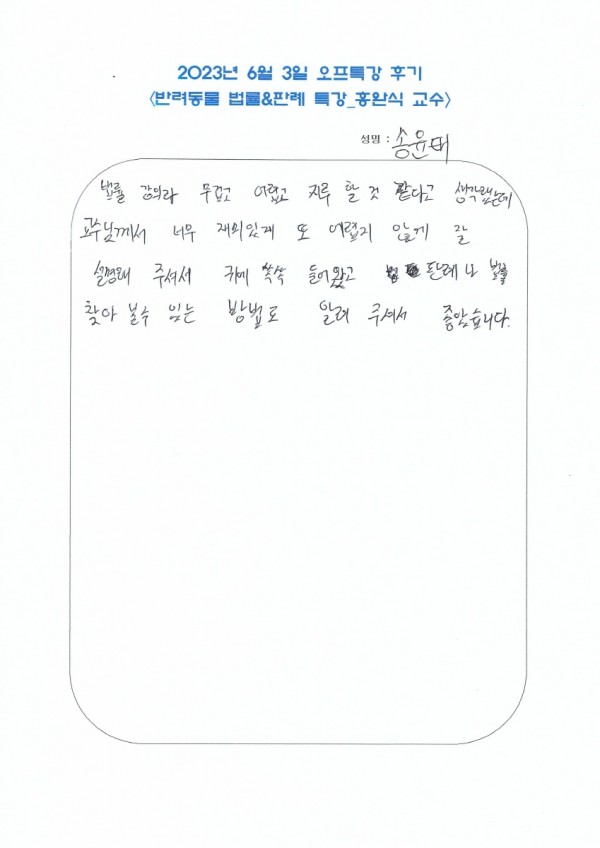 2023년 6월 3일 오프특강 후기
<반려동물 법률&판례 특강_홍완식 교수>
성명 : 송윤태
법률 강의라 무겁고 어렵고 지루 할 것 같다고 생각했는데
교수님께서 너무 재미있게 또 어렵지 않게 잘
설명해 주셔서 귀에 쏙쏙 들어왔고 판례나 법률
찾아 볼수 있는 방법도 알려 주셔서 좋았습니다.